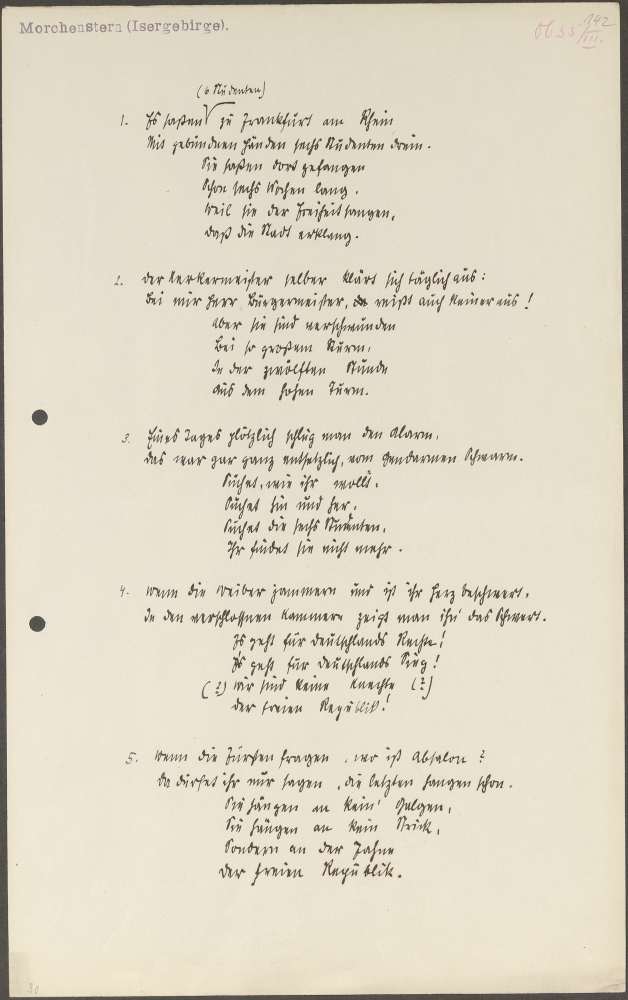 Morchenstern (Isergebirge).
342
III.
(6 Studenten)
1. Es saßen zu Frankfurt am Rhein
Mit gebundnen Händen sechs Studenten drein.
Sie saßen dort gefangen
Schon sechs Wochen lang.
Weil sie der Freiheit sangen,
daß die Stadt erklang.
2. Der Kerkermeister selber klärt sich täglich aus:
Bei mir Herr Bürgermeister, da reißt auch keiner aus!
Aber sie sind verschwunden
Bei so großem Sturm,
In der zwölften Stunde
Aus dem hohen Turm.
3. Eines Tages plötzlich schlug man den Alarm,
Das war gar ganz entsetzlich, vom Gendarmen Schwarm.
Suchet, wie ihr wollt,
Suchet hin und her,
Suchet die sechs Studenten,
Ihr findet sie nicht mehr.
4. Wenn die Weiber jammern und ist ihr Herz beschwert,
In den verschloßnen Kammern zeigt man ihn' das Schwert.
Es geht für Deutschlands Rechte!
Es geht für Deutschlands Sieg!
(?) Wir sind keine Knechte (?)
Der freien Republik!
5. Wenn die Fürsten fragen, wo ist Absalon?
Da dürfet ihr nur sagen, die letzten hangen schon.
Sie hängen an kein' Galgen,
Sie hängen an kein Strick,
Sondern an der Fahne
Der freien Republik.
30